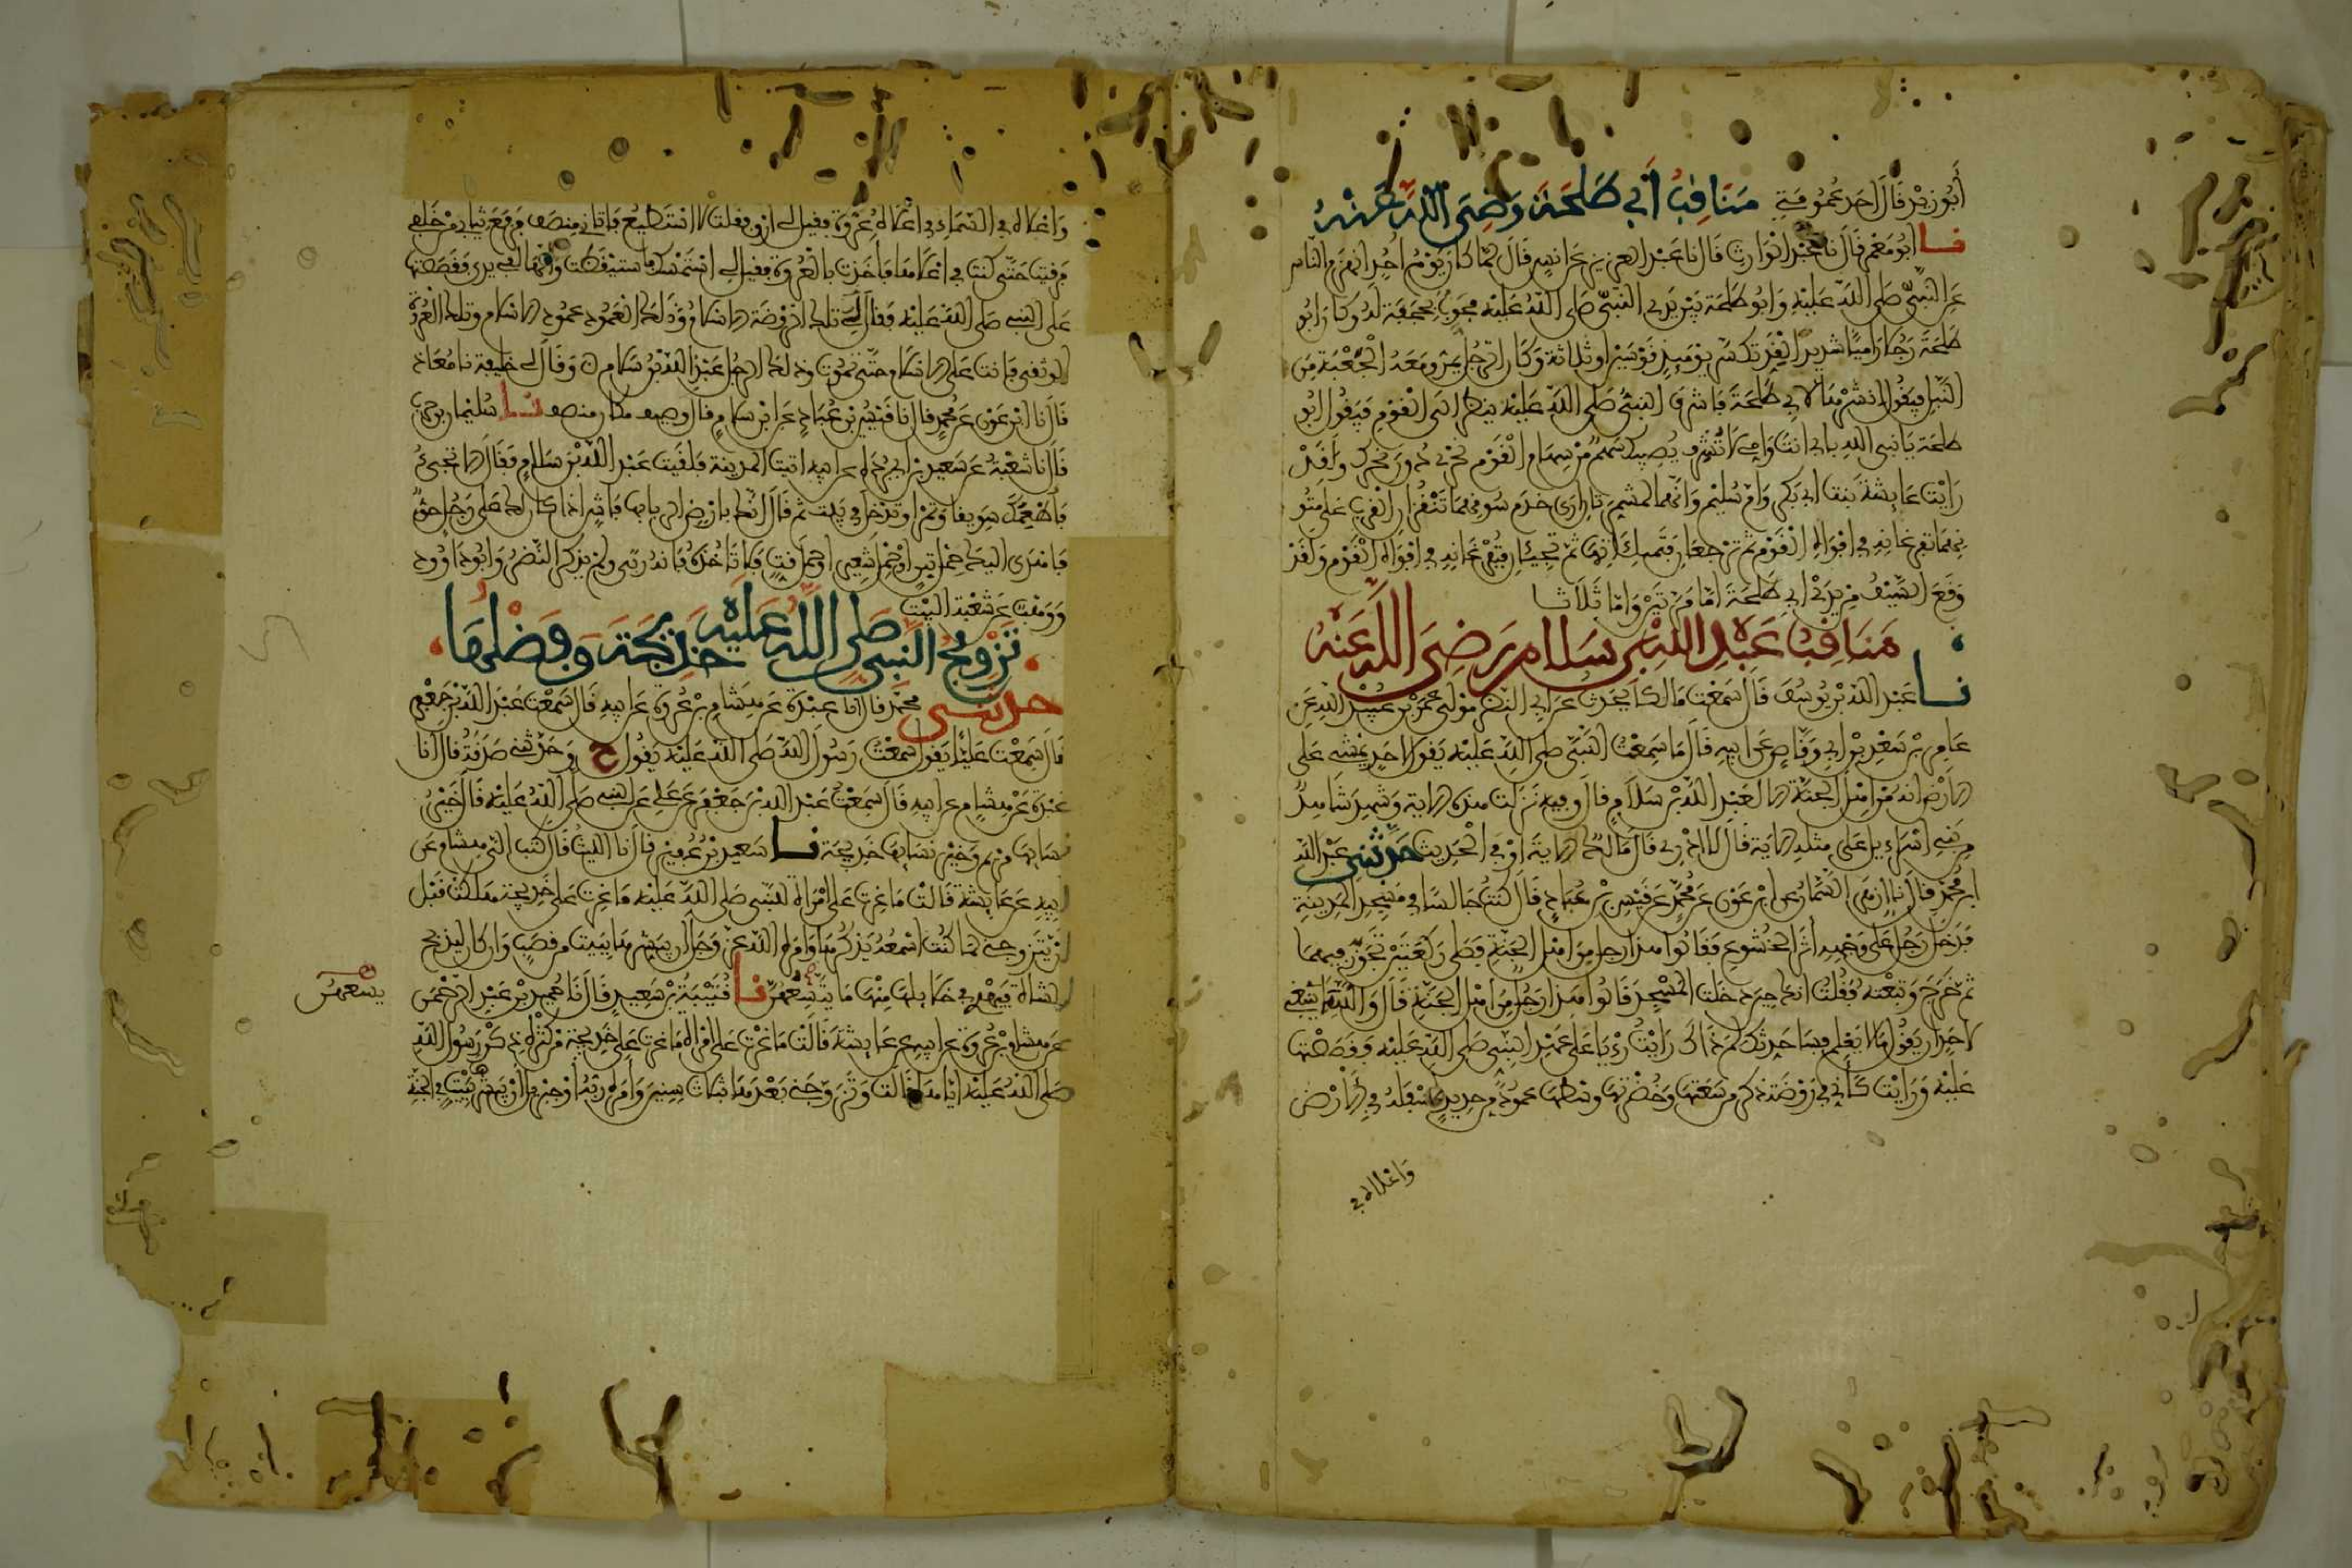 أَبُو زيد قَالَ احد عُمُومَتِي مَنَاقِبُ أَبِي طَلْحَةَ رَضِيَ اللَّهُ عَنْهُ
نا ابُو مَعْمَر قَالَ نا عَبْدُ الْوَارِثِ قَالَ نا عَبْدُ العزيز عَن انس قَالَ لَمَّا كَانَ يَوْمُ احُدٍ انْهَزَم النَّاسُ
عَن النَّبِيّ صَلى اللَّهُ عَلَيْهِ وَابُو طَلْحَةَ بَيْنَ يَدَى النَّبِيّ صَلى اللَّهُ عَلَيْهِ مُجَوِّبٌ بِحَجَفَةٍ لَهُ وَكَانَ ابُو
طَلْحَةَ رَجُلا رَامِيًا شَدِيدًا الْقِدِّ تكسّر يَوْمَئِذٍ قَوْسَيْن او ثلاثة وَكَانَ الرَّجُل يَمُرُّ وَمَعَهُ الْجَعْبَة مِنَ
النَّبْل فَيَقُول انْشُرْهَا لابِي طَلْحَةَ فَاشْرَفَ النَّبِيُّ صَلى اللَّهُ عَلَيْهِ ينظر الَى الْقَوْمِ فَيَقُول ابُو
طلحَة يَا نَبِي اللهِ بابِي انْتَ وَامِّي لَا تُشْرِف يُصِيبك سَهْمٌ مِنْ سِهَام الْقَوْم نَحْرِي دُونَ نَحْرِك وَلَقَدْ
رَايْت عَايِشَةَ بنت ابِي بَكر وَام سُلَيْم وَانَّهما لمشمرَتان ارَى خدَم سُوقهمَا تَنْقُزَان الْقِرَب عَلى مُتُو
نِهِمَا تفرغَانِهِ فِي افْوَاهِ الْقَوْم ثمّ تَرْجعَان فَتملانِهَا ثمّ تَجِيئَان فتفْرغَانِهِ فِي افْوَاه الْقَوْم وَلَقَدْ
وَقَعَ السَّيْفُ مِن يَدَيْ ابِي طَلْحَةَ امَّا مَرّتَيْن وَامَّا ثَلَاثا
مَنَاقِبُ عَبْدِ اللَّهِ بْنِ سَلَام رَضِيَ اللَّهُ عَنْهُ
نا عَبْدُ اللَّهِ بْن يُوسُفَ قَالَ سَمِعْت مَالكا يُحَدِّث عَن ابِي النَّضْر مَوْلَى عُمَرَ بْن عُبَيْدِ اللهِ عَن
عَامِر بْن سَعْدِ بْن ابِي وَقَّاصٍ عَن ابِيهِ قَالَ مَا سَمِعْت النَّبِيّ صلى اللَّهُ عَلَيْهِ يَقول لاحد يَمْشِي عَلى
الارْض انه مِن اهْل الْجَنَّة الا لعَبْدِ اللَّهِ بْن سَلَام قَالَ وَفِيهِ نَزَلَت هذه الاية وَشَهِدَ شَاهِدٌ
مِن بَنِي اسْرَاءيل عَلَى مثلهِ الايَة قَالَ لا ادْرِي قَالَ مَالكٌ الايَةَ اوْ فِي الْحَدِيث حَدَّثَنِي عَبْدُ اللهِ
ابن مُحَمَّد قَالَ نا ازْهَر السَّمَّان عن ابْن عَوْن عَن مُحَمَّدٍ عَن قَيْسِ بْن عُبَادٍ قَالَ كُنْتُ جَالسًا فِي مَسْجِدِ الْمَدِينَةِ
فَدَخَلَ رَجُل عَلَى وَجْهِهِ اثَر الْخُشُوعِ فَقَالُوا هذا رجل مِن اهْل الْجَنَّةِ فَصَلى رَكْعَتَيْن تَجَوَّزَ فِيهِمَا
ثمّ خَرَجَ وَتبعْته فَقُلْتُ انك حِين دخلت الْمَسْجِدَ قَالُوا هَذَا رَجُل مِن اهْل الْجَنَّةِ قَالَ وَاللَّهِ مَا يَنْبَغِي
لاحَدٍ ان يَقُول مَا لا يَعْلم فسَاحَدثك لم ذَاكَ رَايْتُ رُءْيَا عَلَى عَهْدِ النَّبِي صلى اللَّهُ عَلَيْهِ فَقَصَصْتهَا
عَلَيْهِ وَرَايْت كَانِّي فِي رَوْضَة ذكر من سَعَتِهَا وَخُضْرَتِهَا وسْطَهَا عَمُودٌ من حَدِيدٍ اسْفَلهُ فِي الارْض
وَاعْلاه في
وَاعْلاه فِي السَّمَاءِ فِي اعْلاهُ عُرْوَة فقيل لِي ارْقه فقلت لا اسْتَطِيعُ فَاتَانِي مِنْصَف فَرَفَعَ ثيابِي مِن خَلْفِي
فَرَقِيتُ حَتَّى كنت فِي اعْلاهَا فَاخَذْت بالْعُرْوَة فقيل لِي اسْتَمْسِكْ فاستيقظت وَانَّهَا لَفِي يدِي فَقَصَصْتهَا
عَلى النَّبِي صَلى اللَّهُ عَلَيْه فَقَالَ تلك الرَّوْضَة الاسلام وَذَلك الْعَمُود عَمُود الاسلام وتلك الْعُرْوَة
الوثقى فَانت عَلى الاسْلام حَتَّى تموت وذلك الرجُل عَبْدُ اللَّهِ بْن سَلَام وَقَالَ لِي خَلِيفة نا مُعَاذ
قَالَ نا ابْن عَوْن عَن مُحَمَّدٍ قَالَ نا قَيْسُ بْن عُبَادٍ عَن ابْن سَلَامٍ قَالَ وصيف مكان منصف نا سُلَيْمَان بن حربٍ
قَالَ نا شُعْبَةُ عَن سَعِيدِ بْن ابِي بُرْدَة عن ابِيهِ اتيت الْمَدِينَة فَلَقِيت عَبْدَ اللَّهِ بْن سَلَامٍ فَقَالَ الا تَجِيءُ
فَاطْعِمك سَوِيقا وَتَمْرا وتدْخل فِي بيت ثم قَالَ انّك بارْض الربا بها فَاشٍ اذا كان لك على رَجُل حَقٌّ
فَاهْدَى اليك حِمْل تِبْن اوْ حِمْل شَعِير اوْ حِمْل قَتٍّ فَلا تَاخُذهُ فَانهُ ربَى وَلم يذكر النَّضْرُ وَابُو دَاوُود
وَوَهْب عَن شُعْبَة الْبَيْت
تَزْوِيجُ النَّبِيِّ صَلى اللَّهُ عَلَيْهِ خَدِيجَةَ وَفَضْلُهَا
حدثني مُحَمَّد قَالَ انا عَبْدَة عَن هِشَامِ بْن عُرْوَةَ عَن ابِيهِ قَالَ سَمِعْتُ عَبْدَ اللَّهِ بْن جَعْفَر
قَالَ سَمِعْت عَلِيّا يَقول سَمِعْتُ رَسُولَ اللَّهِ صَلى اللَّهُ عَلَيْه يَقُول ح وَحَدَّثَنِي صَدَقَةُ قَالَ انا
عَبْدَة عَن هِشَامٍ عن ابِيهِ قَالَ سَمِعْتُ عَبْدَ اللَّهِ بْن جَعْفَر عَن عَلِي عَن النَّبِي صَلى اللَّهُ عَلَيْه قَالَ خَيْرُ
نسَايهَا مَرْيَم وَخَيْر نسَايهَا خَدِيجَة نا سَعِيد بْن عُفَيْر قَالَ نا اللَّيْثُ قَالَ كَتَبَ الَيَّ هِشَام عَن
ابِيهِ عَن عَايِشَة قَالَت مَا غِرْت عَلى امْرَاة للنَّبِي صَلى اللَّهُ عَلَيْه مَا غِرْت عَلى خَدِيجَة هَلَكَتْ قَبْل
انْ يَتَزَوجَنِي لمَا كُنْت اسْمَعُهُ يَذكُرهَا وَامَره اللَّهُ عَز وَجَل ان يبَشّرهَا بِبَيْت من قصَبٍ وَان كان ليَذبَح
الشاة فَيُهْدِي فِي خَلَايلهَا مِنْهَا مَا يَتَّسِعُهُنَّ نا قُتَيْبَةُ بْن سَعِيدٍ قَالَ نَا حُمَيْد بْن عَبْدِ الرَّحْمَن
يسعهن
عَن هِشَام بْن عُرْوَة عن ابِيهِ عن عَايشَة قَالَت مَا غِرْت عَلى امْرَاة مَا غِرت عَلى خَدِيجَة مِن كَثْرَة ذِكْر رَسُول اللَّهِ
صَلى اللَّهُ عَلَيْه ايَّاهَا قَالَت وَتَزَوَّجَنِي بَعْدهَا بثلاث سِنِينَ وَامَره رَبّهُ اوْ جِبْرِيل انْ يُبَشّرهَا بِبَيْتٍ فِي الْجَنَّةِ